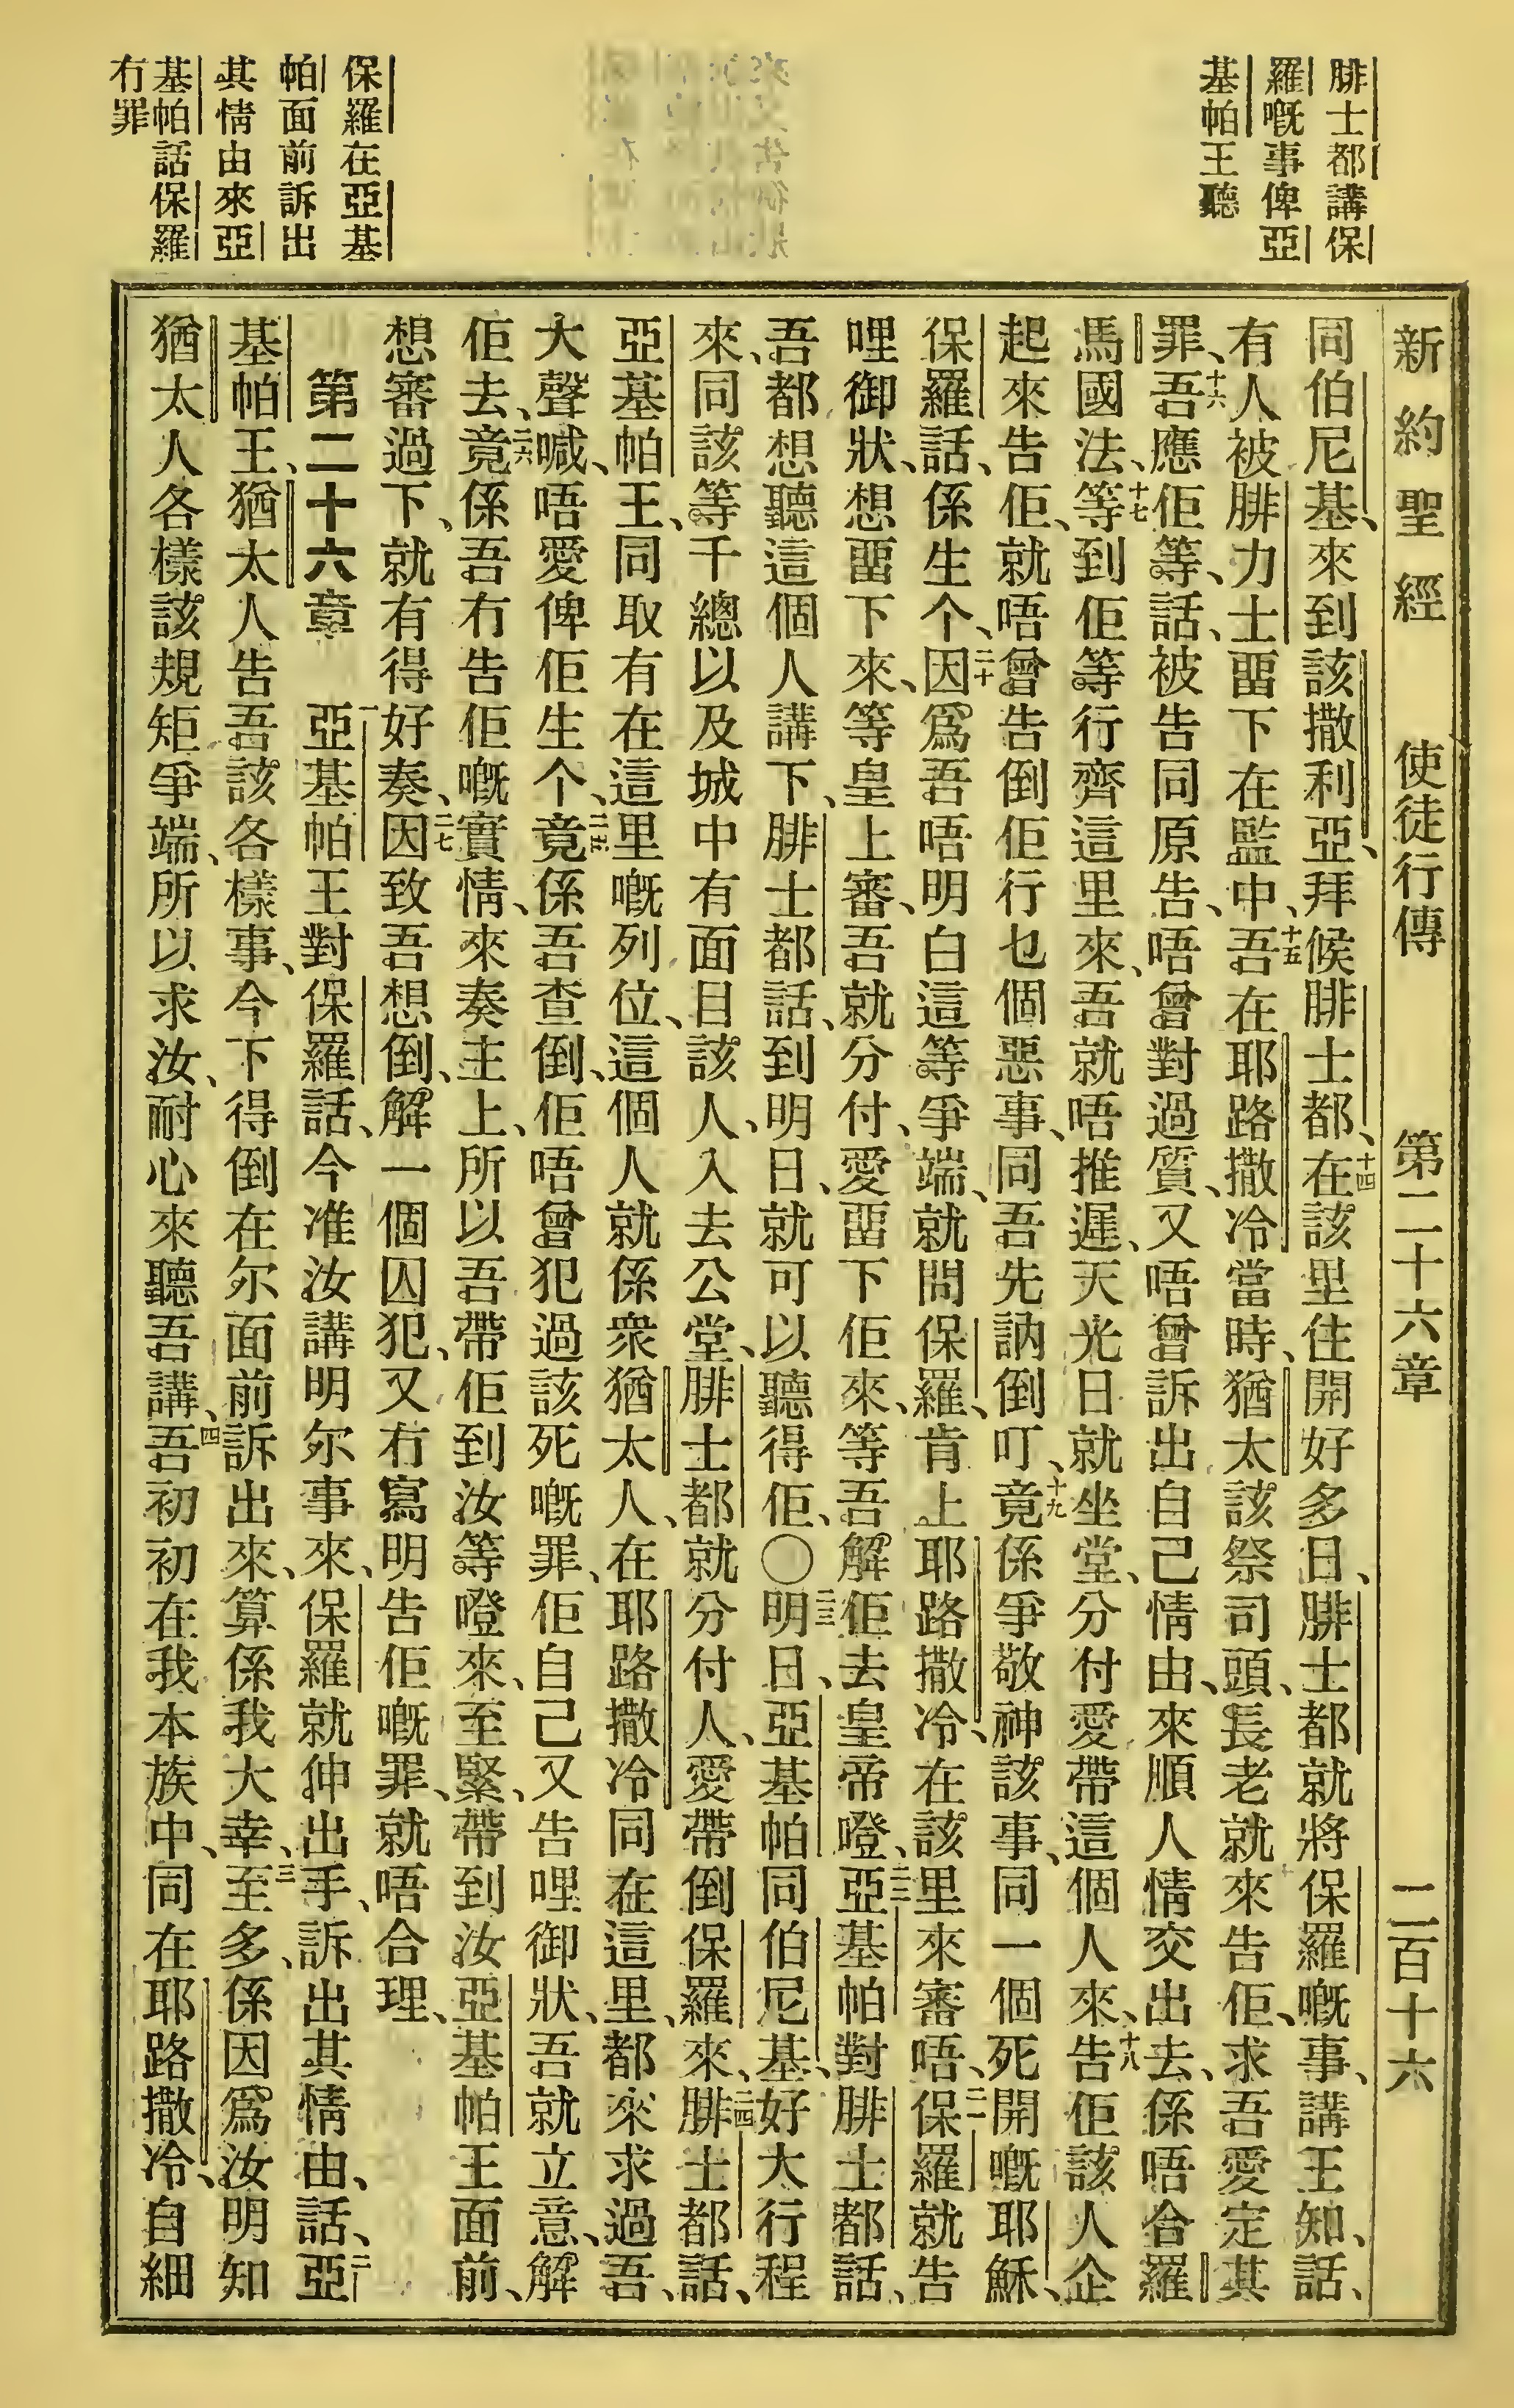 腓士都講保
羅嘅事俾亞
基帕王聽
保羅在亞基
帕面前訴出
其情由來亞
基帕話保羅
冇罪
新約聖經 使徒行傳 第二十六章 二百十六
同伯尼基、來到該撒利亞、拜候腓士都、十四在該里住開好多日、腓士都就將保羅嘅事、講王知、話、
有人被腓力士畱下在監中、十五吾在耶路撒冷當時、猶太該祭司頭、長老就來告佢、求吾愛定其
罪、十六吾應佢等、話、被告同原告、唔曾對過質、又唔曾訴出自己情由、來順人情交出去、係唔合羅
馬國法、十七等到佢等行齊這里來、吾就唔推遲、天光日就坐堂、分付愛帶這個人來、十八告佢該人企
起來告佢、就唔曾告倒佢行乜個惡事、同吾先訥倒叮、十九竟係爭敬神該事、同一個死開嘅耶穌、
保羅話、係生个、二十因爲吾唔明白這等爭端、就問保羅、肯上耶路撒冷、在該里來審唔、二一保羅就告
哩御狀、想畱下來、等皇上審、吾就分付、愛畱下佢來、等吾解佢去皇帝嶝、二二亞基帕對腓士都話、
吾都想聽這個人講下、腓士都話、到明日、就可以聽得佢、〇二三明日、亞基帕同伯尼基、好大行程
來、同該等千總以及城中有面目該人、入去公堂、腓士都就分付人、愛帶倒保羅來、二四腓士都話、
亞基帕王、同取有在這里嘅列位、這個人就係衆猶太人、在耶路撒冷同在這里、都來求過吾、
大聲喊、唔愛俾佢生个、二五竟係吾查倒、佢唔曾犯過該死嘅罪、佢自己又告哩御狀、吾就立意、解
佢去、二六竟係吾冇告佢嘅實情、來奏主上、所以吾帶佢到汝等嶝來、至緊帶到汝亞基帕王面前、
想審過下、就有得好奏、二七因致吾想倒、解一個囚犯、又冇寫明告佢嘅罪、就唔合理、
第二十六章 一亞基帕王對保羅話、今准汝講明尔事來、保羅就伸出手、訴出其情由、話、二亞
基帕王、猶太人告吾該各樣事、今下得倒在尔面前訴出來、算係我大幸、三至多、係因爲汝明知
猶太人各樣該規矩爭端、所以求汝、耐心來聽吾講、四吾初初在我本族中、同在耶路撒冷、自細